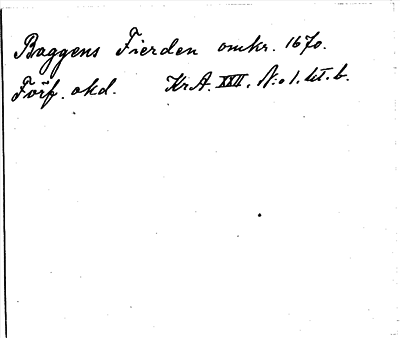 Baggens Fierden omkr. 1670.
Förf. okd. KrA. XXII. N:o 1. lit. b.